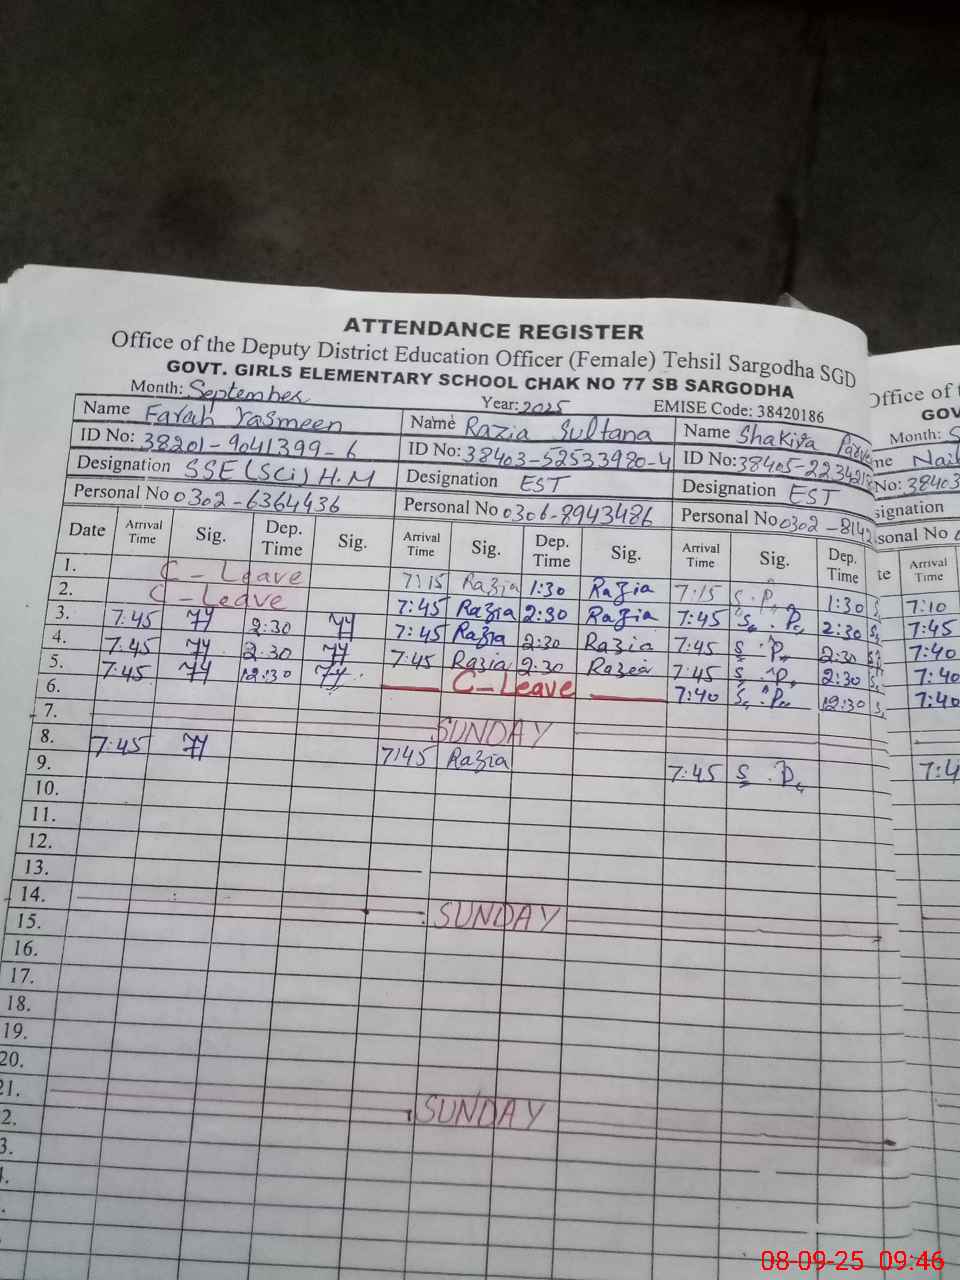 ATTENDANCE REGISTER
Office of the Deputy District Education Officer (Female) Tehsil Sargodha SGD
GOVT. GIRLS ELEMENTARY SCHOOL CHAK NO 77 SB SARGODHA
Month: September Year: 2025 EMISE Code: 38420186
Name Farah Yasmeen Name Razia Sultana Name Shakira
ID No: 38201-9041399-6 ID No: 38403-52533980-4 ID No: 38405-
Designation SSE (Sci) H.M Designation EST Designation EST
Personal No 0302-6364436 Personal No 0306-8943486 Personal No 0302-814
Date Arrival Time Sig. Dep. Time Sig. Arrival Time Sig. Dep. Time Sig. Arrival Time Sig. Dep. Time
1. C-Leave 7:15 Razia 1:30 Razia 7:15 S.P. 1:30
2. C-Leave 7:45 Razia 2:30 Razia 7:45 S.P. 2:30
3. 7:45 2:30 7:45 Razia 2:30 Razia 7:45 S.P. 2:30
4. 7:45 2:30 7:45 Razia 2:30 Razia 7:45 S.P. 2:30
5. 7:45 12:30 C-Leave 7:40 S.P. 12:30
6.
7. SUNDAY
8. 7:45 7:45 Razia 7:45 S.P.
9.
10.
11.
12.
13.
14. SUNDAY
15.
16.
17.
18.
19.
20.
21. SUNDAY
2.
3.
Office of
GOV
Month: S
me Nail
No: 38403
signation
sonal No
te Arrival Time
7:10
7:45
7:40
7:40
7:40
7:4
08-09-25 09:46